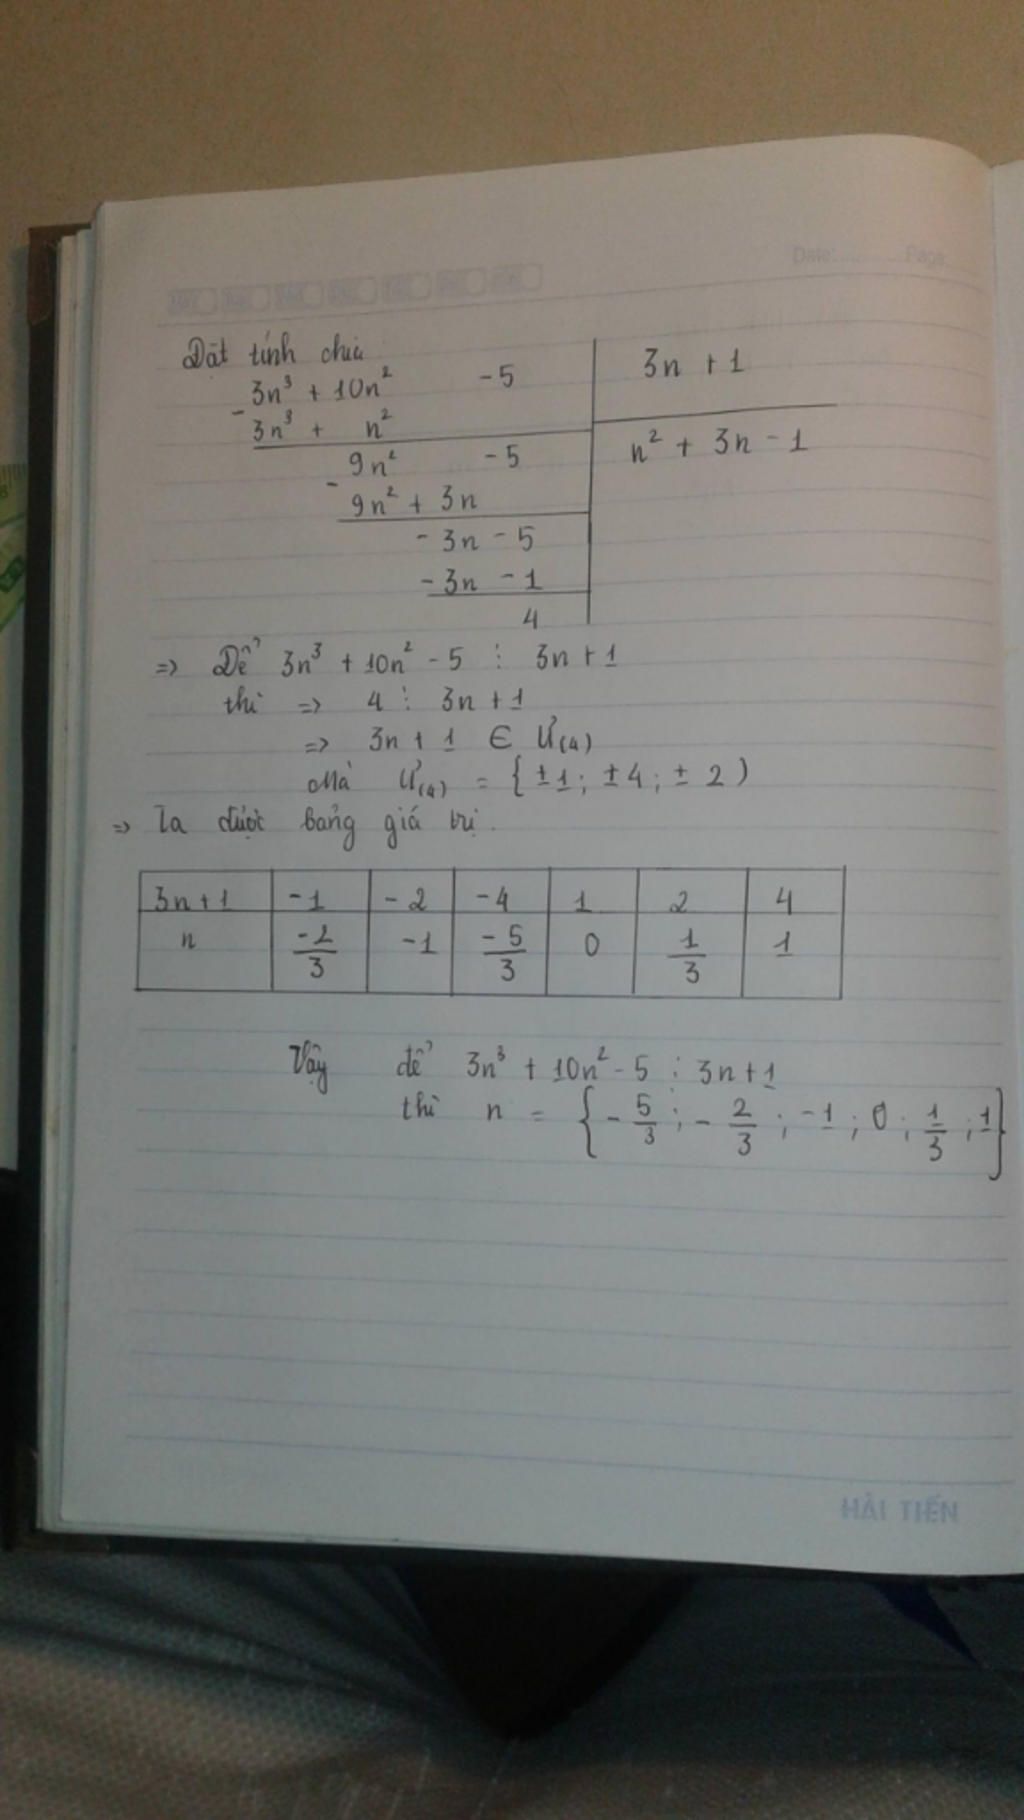 Date:............Page:
Đặt tính chia
3n³ + 10n² - 5 | 3n + 1
- 3n³ + n²
9n² - 5 | n² + 3n - 1
- 9n² + 3n
- 3n - 5
- 3n - 1
4
=> Để 3n³ + 10n² - 5 ⋮ 3n + 1
thì => 4 ⋮ 3n + 1
=> 3n + 1 ∈ Ư(4)
Mà Ư(4) = { ±1; ±4; ± 2 )
=> Ta được bảng giá trị.
3n+1 | -1 | -2 | -4 | 1 | 2 | 4
n | -2/3 | -1 | -5/3 | 0 | 1/3 | 1
Vậy để 3n³ + 10n² - 5 ⋮ 3n+1
thì n = { - 5/3 ; - 2/3 ; -1 ; 0 ; 1/3 ; 1 }
HẢI TIẾN